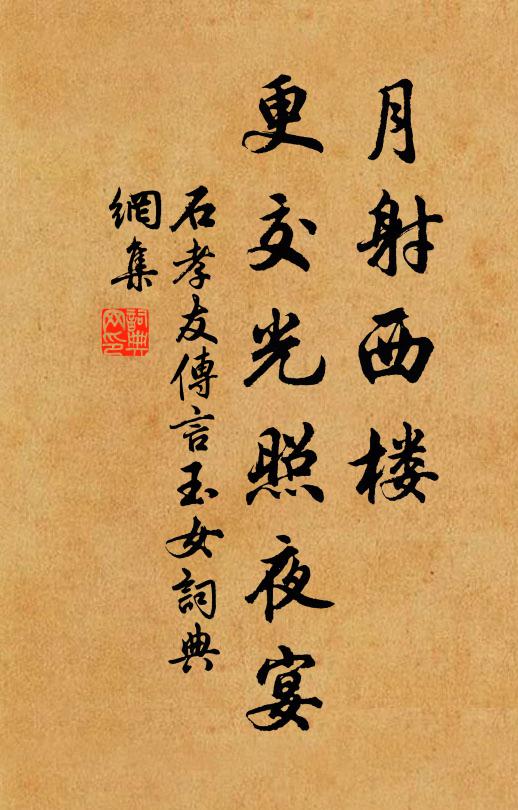 月射西楼
更交光照夜宴
石孝友傳言玉女詞典
網集
詞典網印